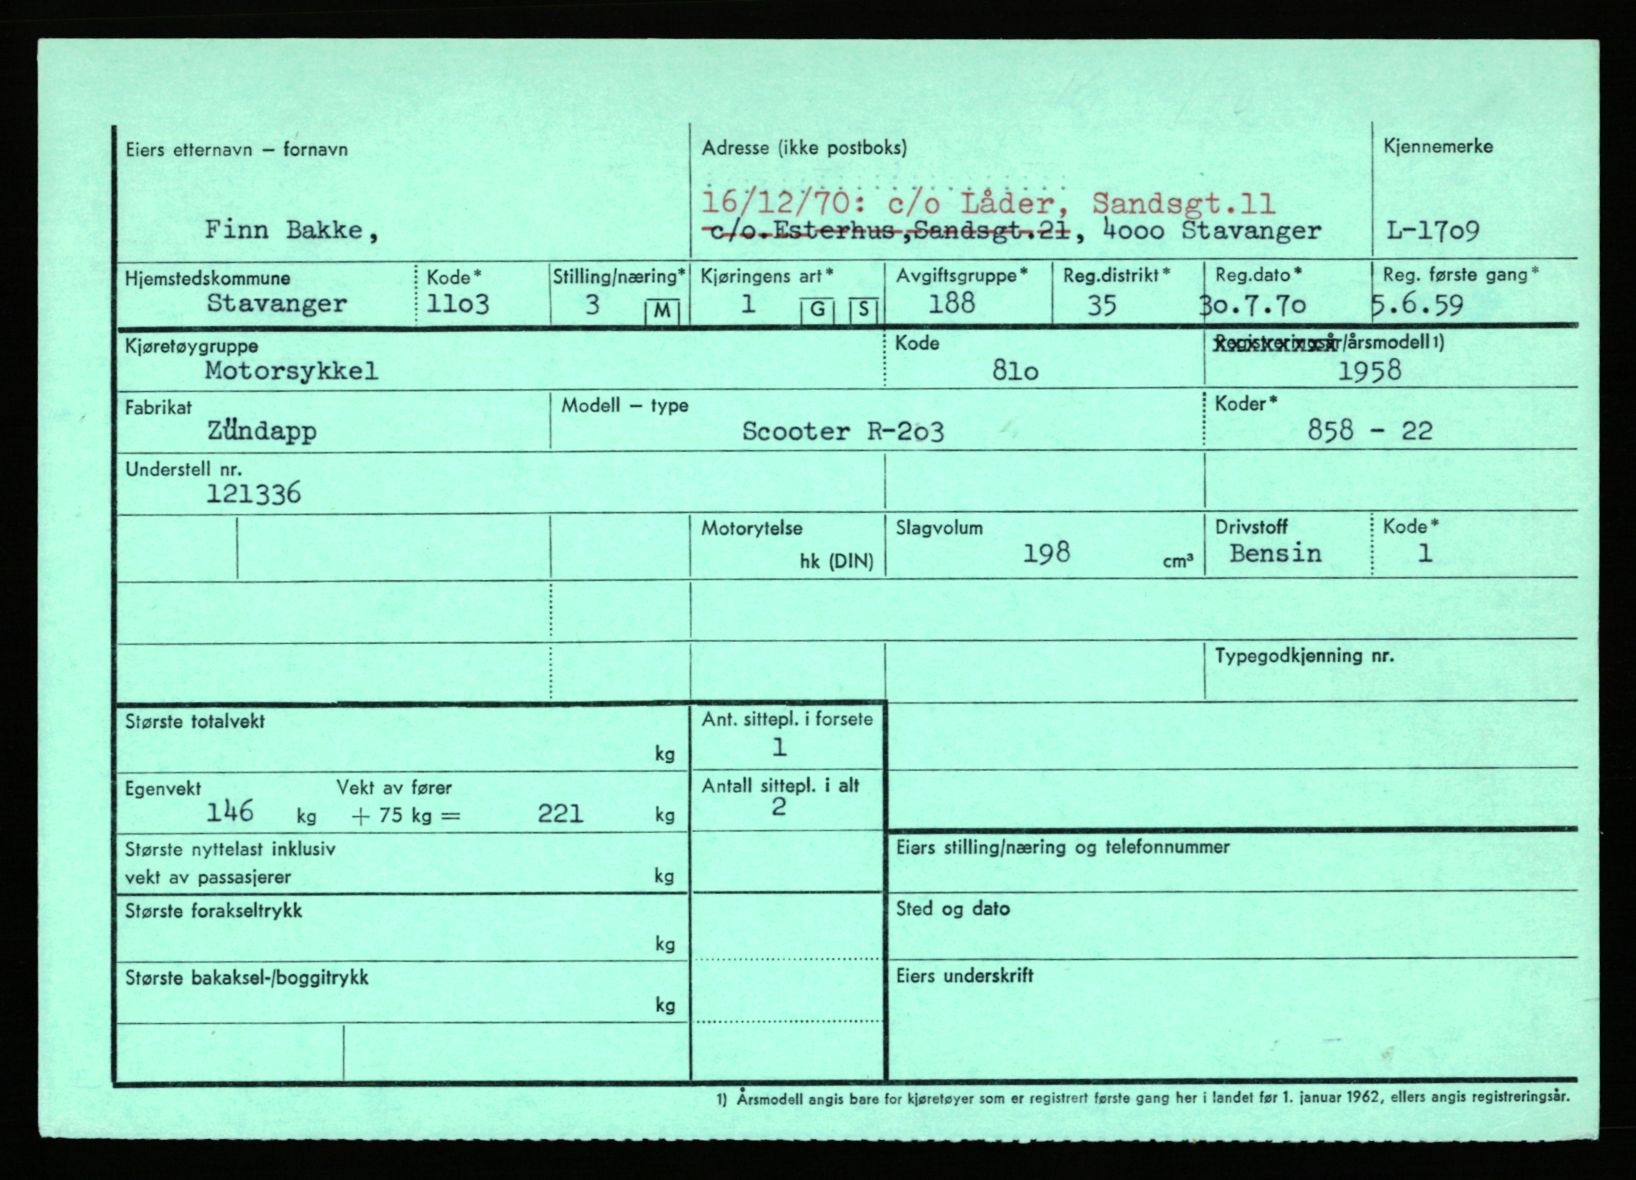 Eiers etternavn – fornavn
Adresse (ikke postboks)
Kjennemerke
16/12/70: c/o Låder, Sandsgt.11
Finn Bakke,
c/o.Esterhus,Sandsgt.21, 4ooo Stavanger
L-17o9
Hjemstedskommune
Kode*
Stilling/næring*
Kjøringens art*
Avgiftsgruppe*
Reg.distrikt*
Reg.dato*
Reg. første gang*
Stavanger
11o3
3 M
1 G S
188
35
3o.7.7o
5.6.59
Kjøretøygruppe
Kode
Registreringsår/årsmodell1)
Motorsykkel
81o
1958
Fabrikat
Modell – type
Koder*
Zündapp
Scooter R-2o3
858 - 22
Understell nr.
121336
Motorytelse
Slagvolum
Drivstoff
Kode*
hk (DIN)
198 cm³
Bensin
1
Typegodkjenning nr.
Største totalvekt
Ant. sittepl. i forsete
kg
1
Egenvekt
Vekt av fører
Antall sittepl. i alt
146 kg + 75 kg = 221 kg
2
Største nyttelast inklusiv
vekt av passasjerer kg
Eiers stilling/næring og telefonnummer
Største forakseltrykk
kg
Sted og dato
Største bakaksel-/boggitrykk
kg
Eiers underskrift
1) Årsmodell angis bare for kjøretøyer som er registrert første gang her i landet før 1. januar 1962, ellers angis registreringsår.